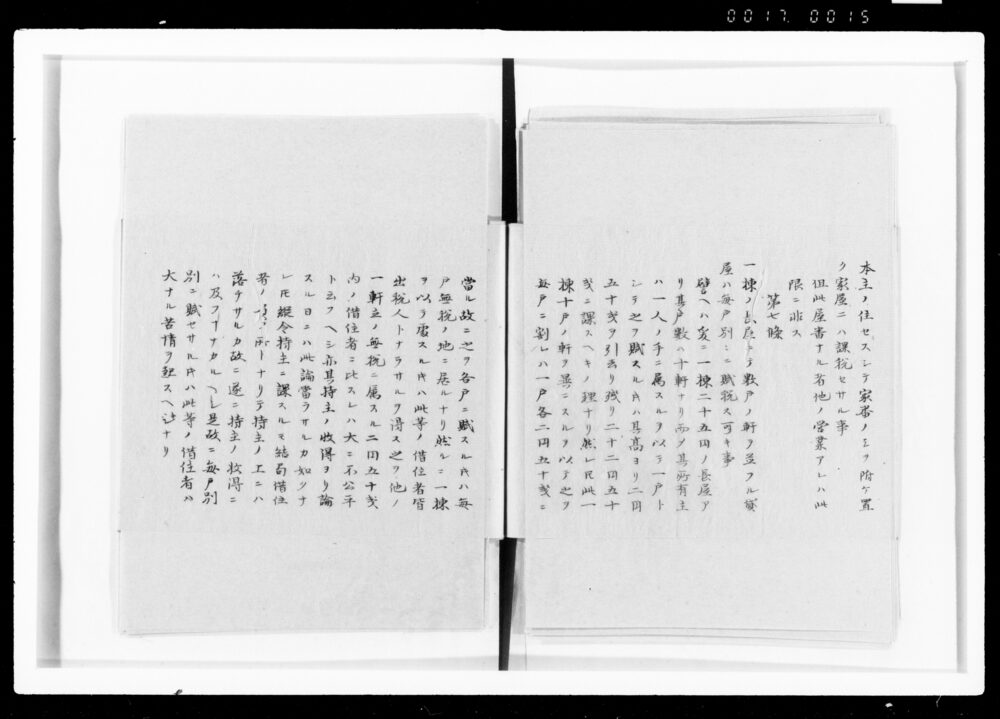 0017. 0015
本主ノ住セスシテ家番ノミヲ附ケ置
ク家屋ニハ課税セサル事
但此屋番ナル者他ノ営業アレハ此
限ニ非ス
第七條
一棟ノ長屋ニテ数戸ノ軒ヲ並フル貸
屋ハ毎戸別ニ賦税ス可キ事
譬ヘハ爰ニ一棟二十五円ノ長屋ア
リ其戸数ハ十軒ナリ而メ其所有主
ハ一人ノ手ニ属スルヲ以テ一戸ト
シテ之ヲ賦スル𪜈ハ其高ヨリ二円
五十銭ヲ引去リ残リ二十二円五十
銭ニ課スヘキノ理ナリ然レ𪜈此一
棟十戸ノ軒ヲ異ニスルヲ以テ之ヲ
毎戸ニ割レハ一戸各二円五十銭ニ
當ル故ニ之ヲ各戸ニ賦スル𪜈ハ毎
戸無税ノ地ニ居ルナリ然ルニ一棟
ヲ以テ賦スル𪜈ハ此等ノ借住者皆
出税人トナラサルヲ得ス之ヲ他ノ
一軒立ノ無税ニ属スル二円五十銭
内ノ借住者ニ比スレハ大ニ不公平
ト云フヘシ亦其持主ノ收得ヨリ論
スル日ニハ此論當ラサルカ如シナ
レ𪜈縦令持主ニ課スルモ結局借住
者ノ所トナリテ持主ノ上ニハ
落チサルカ故ニ遂ニ持主ノ收得ニ
ハ及フナカルヘシ是故ニ毎戸別
別ニ賦セサル𪜈ハ此等ノ借住者ハ
大ナル苦情ヲ起スヘシナリ